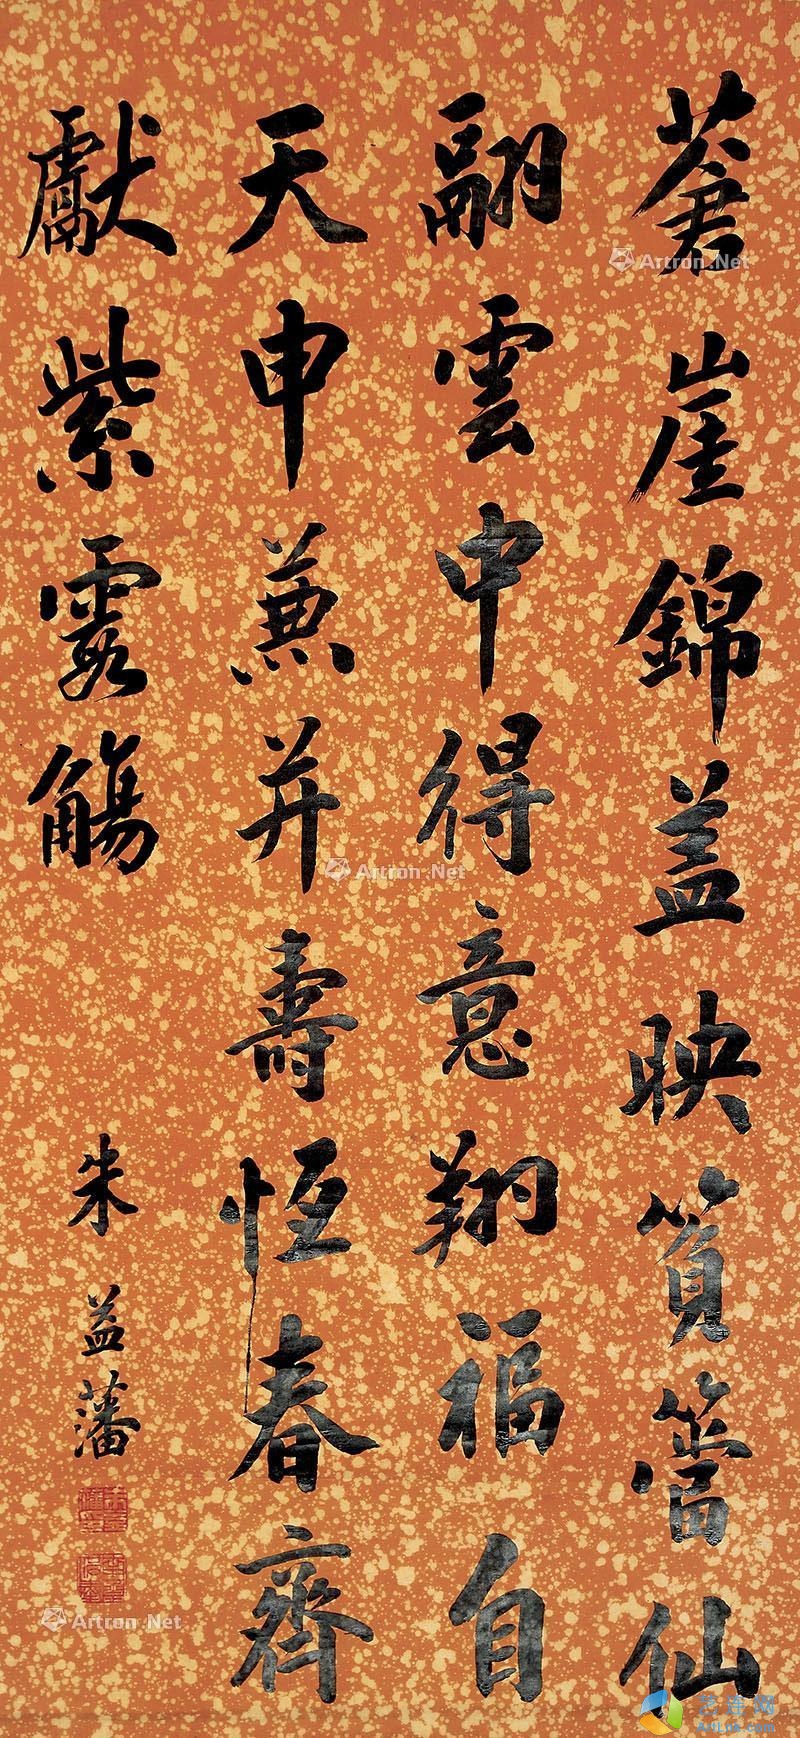 蒼崖錦盖映篔簹仙
翮雲中得意翔福自
天申兼并壽恒春齊
獻紫霞觴
朱益藩
Artron.Net
Artron.Net
Artron.Net